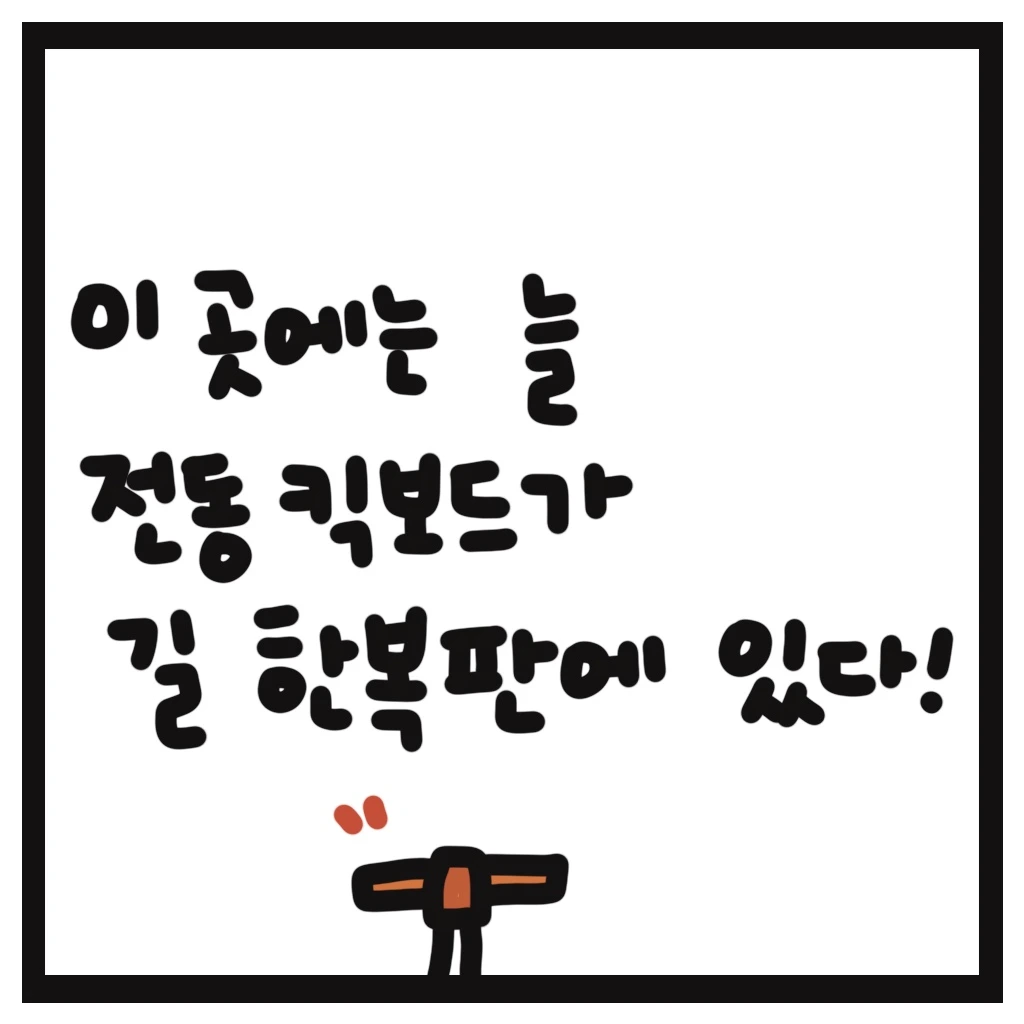 이 곳에는 늘
전동 킥보드가
길 한복판에 있다!